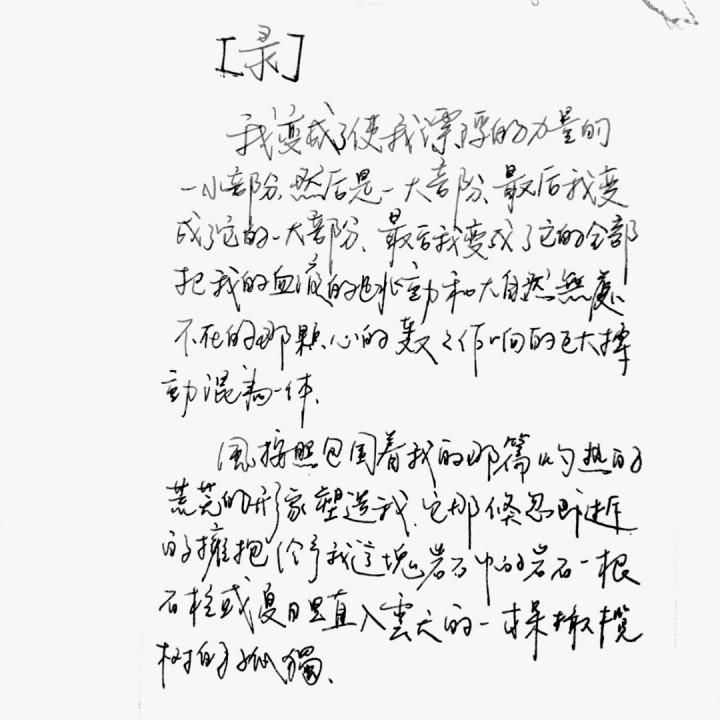 [录]
我变成了使我漂浮的力量的
一小部份、然后是一大部份、最后我变
成了它的一大部份、最后我变成了它的全部
把我的血液的跳動和大自然無處
不在的那顆心的轰轰作响的巨大搏
動混為一体、
風按照包围着我的那篇灼热的
荒芜的形象塑造我、它那倏忽即逝
的擁抱给予我這塊岩石中的岩石一根
石柱或夏日里直入雲天的一棵橄欖
树的孤獨、